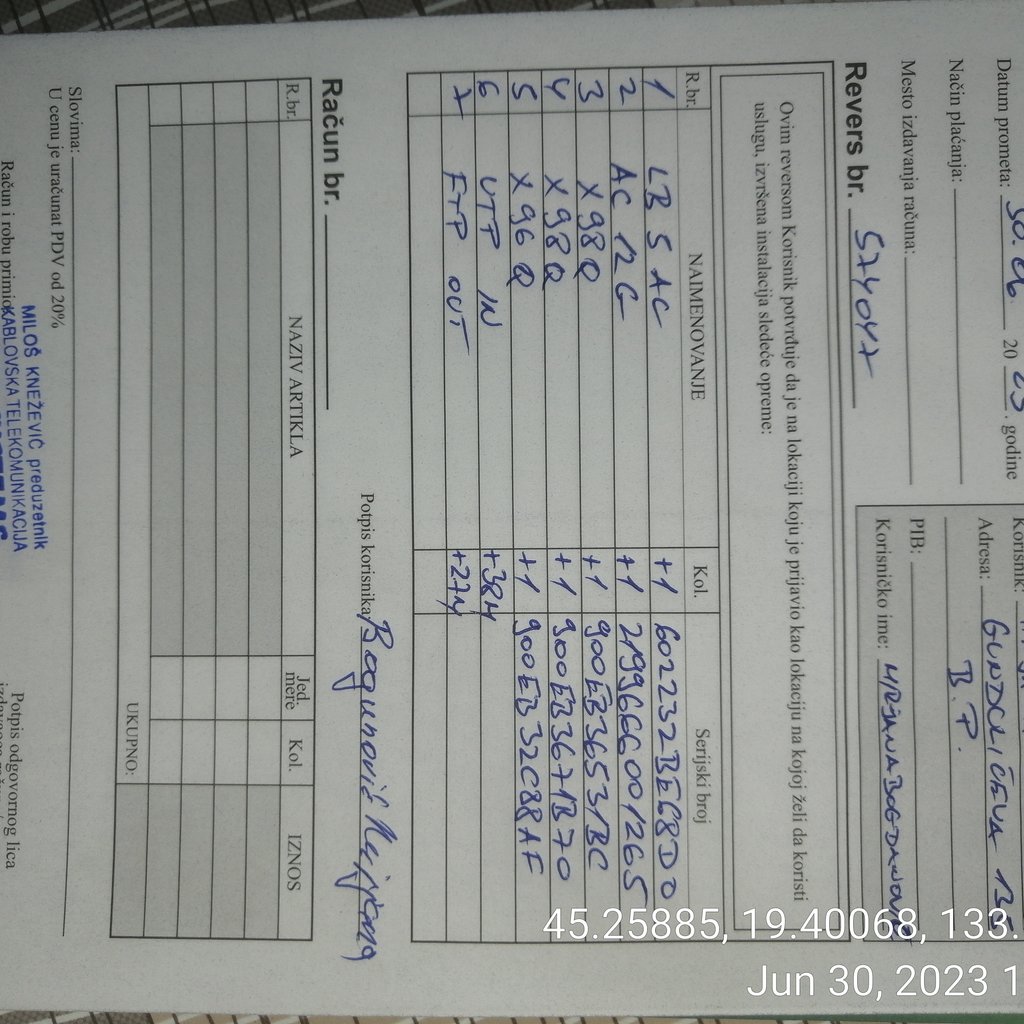 Datum prometa: 30.06 20 23. godine
Način plaćanja:
Mesto izdavanja računa:
Korisnik:
Adresa: GUNDULIĆEVA 135
B.P.
PIB:
Korisničko ime:
Revers br. 574047
Ovim reversom Korisnik potvrđuje da je na lokaciji koju je prijavio kao lokaciju na kojoj želi da koristi
uslugu, izvršena instalacija sledeće opreme:
R.br. NAIMENOVANJE Kol. Serijski broj
1 LB 5 AC +1 602232BEC8D0
2 AC 12G +1 2199666001265
3 X98Q +1 900EB36531BC
4 X98Q +1 900EB3671B70
5 X96Q +1 900EB32C88AF
6 UTP IN +38M
7 FTP OUT +27M
Potpis korisnika
Račun br.
R.br. NAZIV ARTIKLA Jed. mere Kol. IZNOS
UKUPNO:
Slovima:
U cenu je uračunat PDV od 20%
Račun i robu primio
MILOŠ KNEŽEVIĆ preduzetnik
KABLOVSKA TELEKOMUNIKACIJA
Potpis odgovornog lica
45.25885, 19.40068, 133.
Jun 30, 2023 1